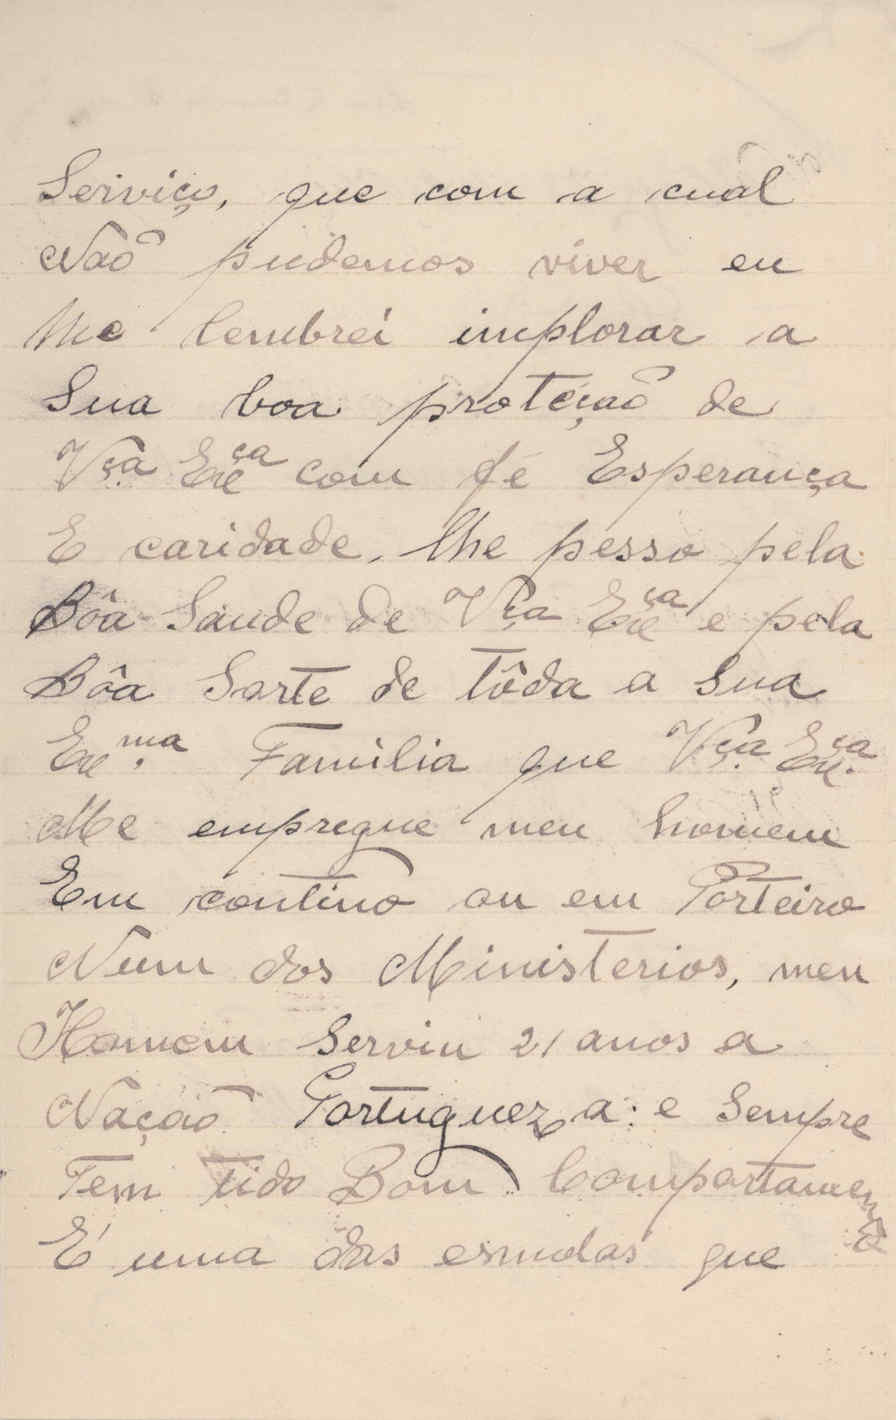 Serviço, que com a cual
Não pudemos viver eu
Me lembrei implorar a
Sua boa proteçaõ de
Vçª Exçª com fé Esperança
E caridade, lhe pesso pela
Bôa Saude de Vçª Exçª e pela
Bôa Sorte de tôda a Sua
Exmª Familia que Vçª Exçª
Me empregue meu homem
Em contino ou em Porteiro
Num dos Ministerios, meu
Homem Serviu 21 anos a
Nação Portugueza: e Sempre
Tem tido Bom Comportamento
E' uma das esmolas que